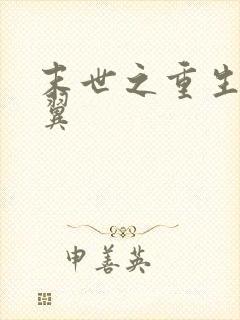 末世之重生
翼
申善英